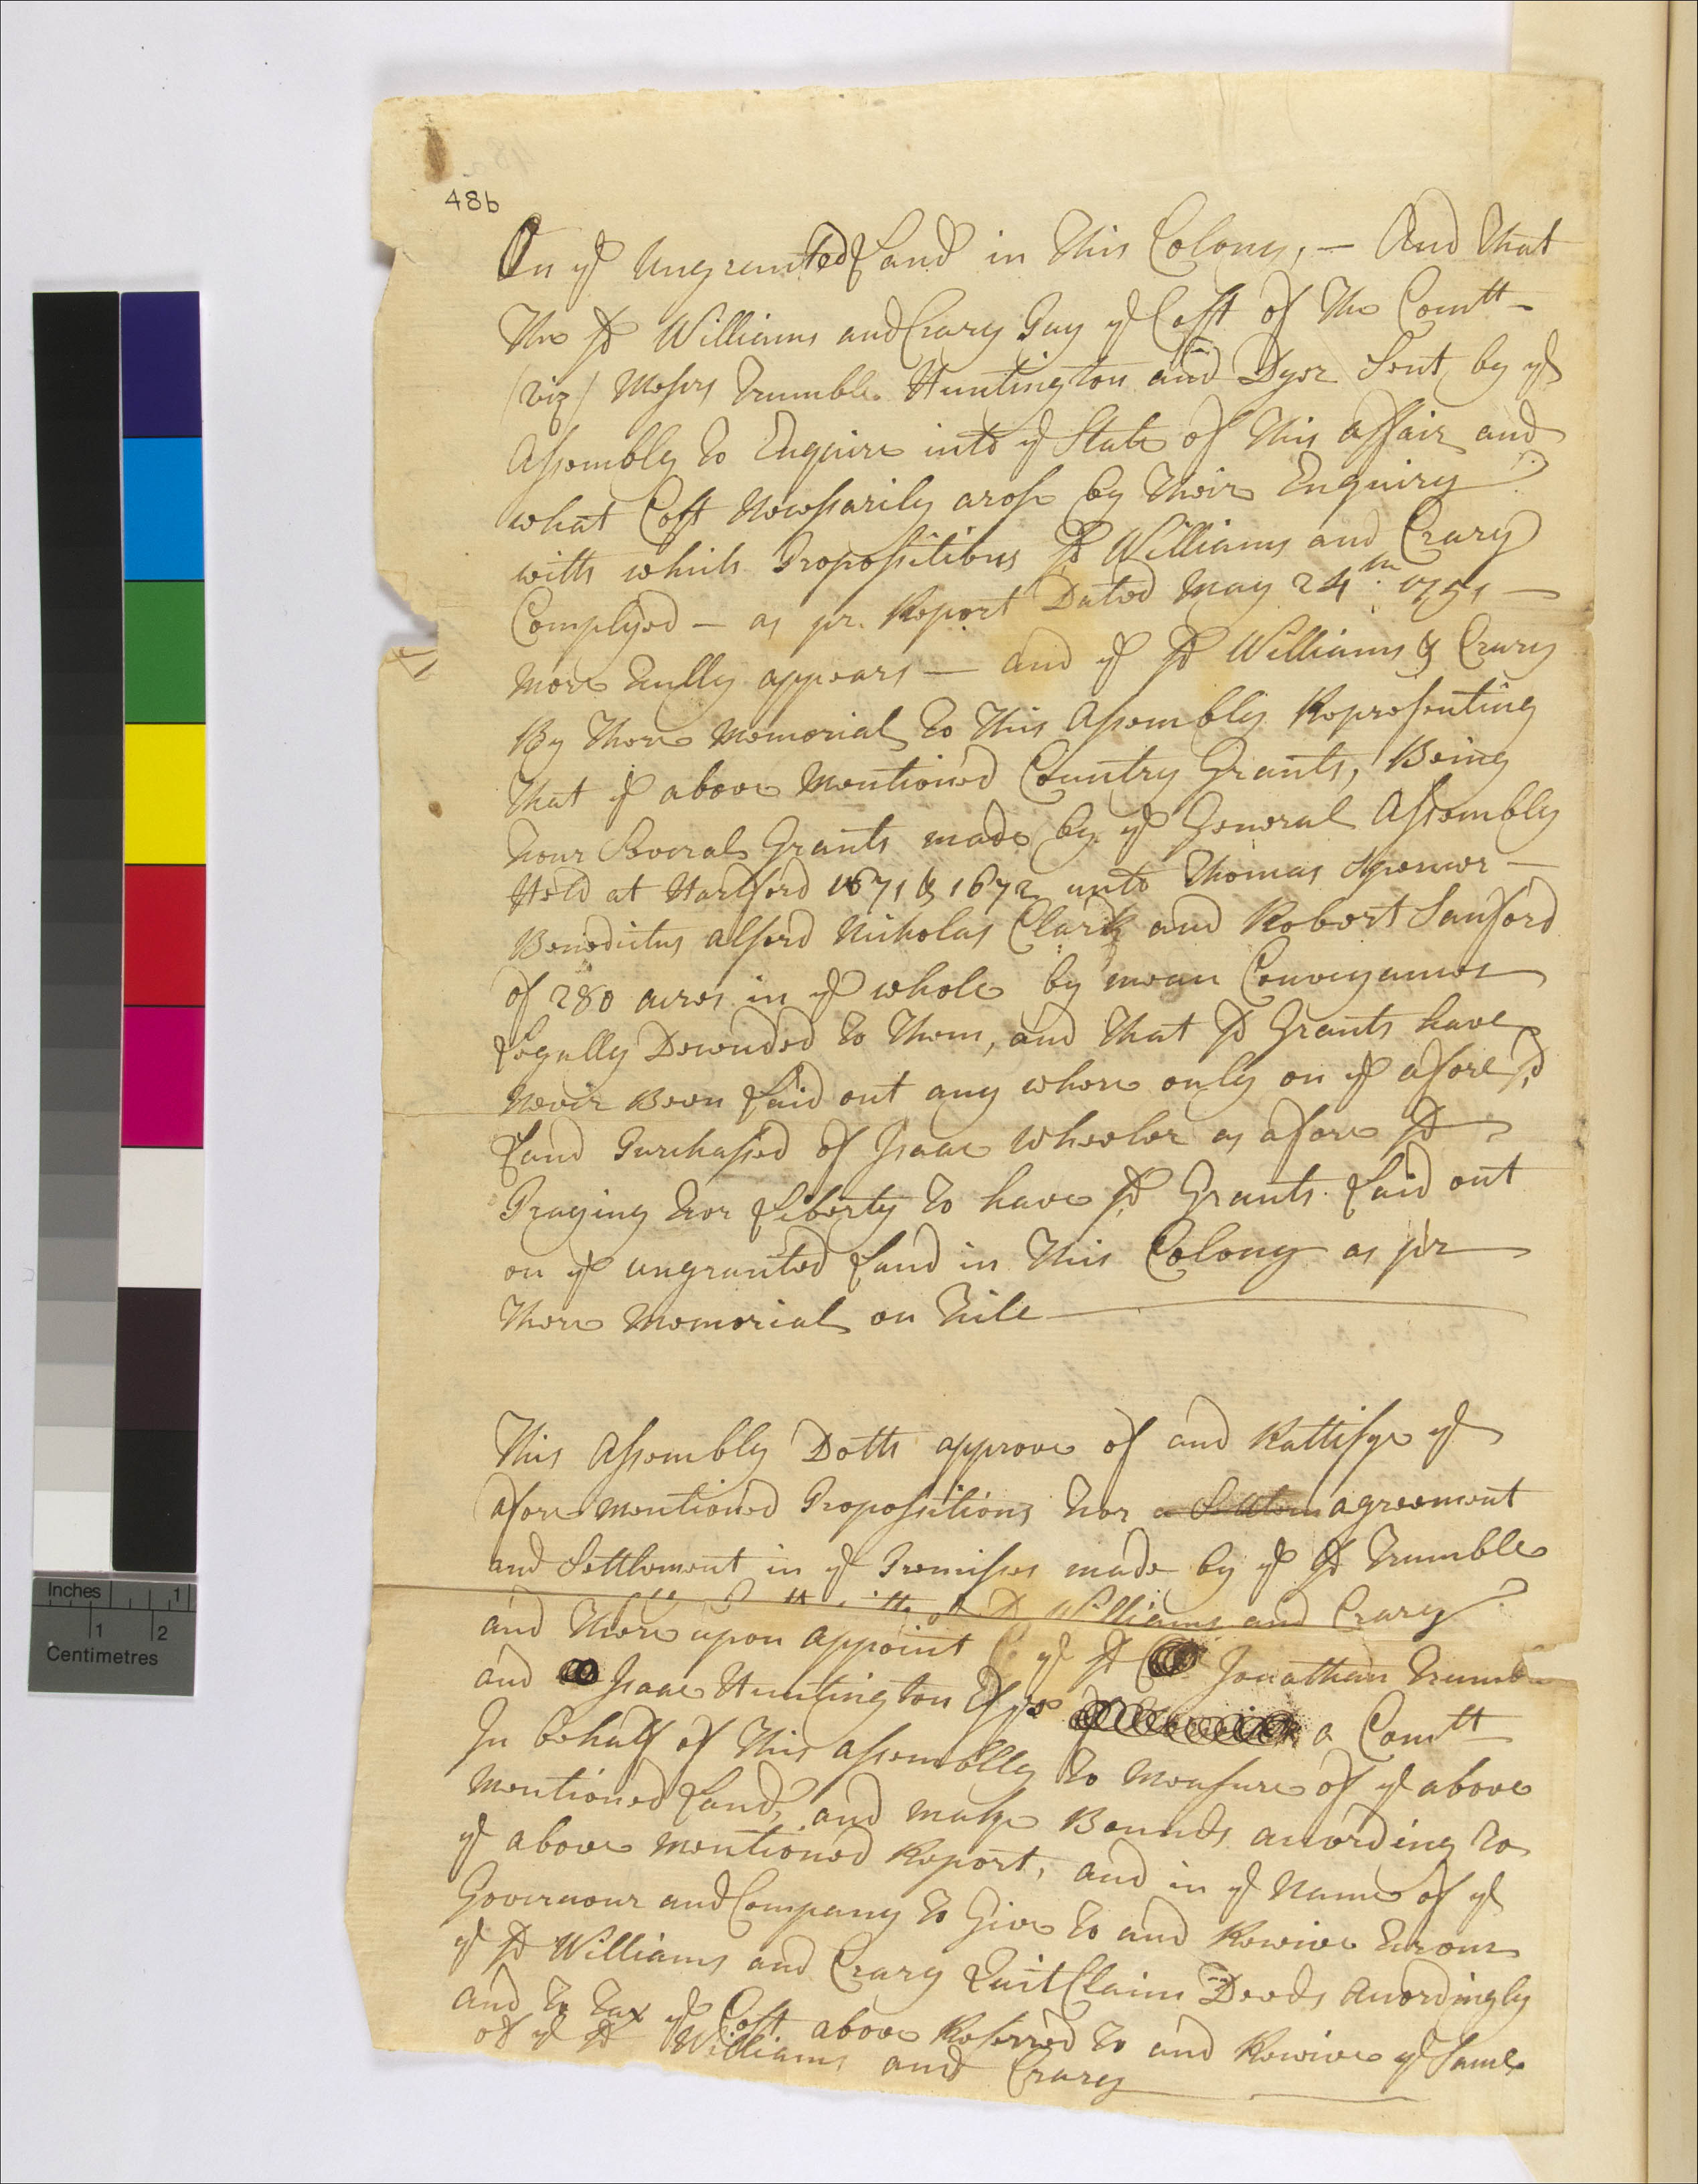 48b
On ye Ungranted Land in This Colony, — And That
The sd Williams and Crary Pay ye Cost of The Comtt —
(viz) Messrs Trumble Huntington and Dyer Sent by ye
Assembly To Enquire into ye State of This affair and
what Cost Necessarily arose by Their Enquiry
with which Propositions sd Williams and Crary
Complyed — as pr. Report Dated May 24th 1751 —
more Fully appears — and ye sd Williams & Crary
By There Memorial To This Assembly Representing
That ye above Mentioned Country Grants, Being
Four Several Grants made by ye General Assembly
Held at Hartford 1671 & 1672 unto Thomas Spencer —
Benedictus Alford Nicholas Clark and Robert Sanford
of 280 acres in ye whole by mean Conveyances
Legally Decended To Them, and That sd Grants have
Never Been Laid out any where only on ye afore sd
Land Purchased of Isaac Wheeler as afore sd
Praying For Liberty To have sd Grants Laid out
on ye ungranted Land in This Colony as pr
There Memorial on File
This Assembly Doth approve of and Rattifye ye
afore mentioned Propositions For agreement
and Settlement in ye Premisses made by ye sd Trumble
Williams and Crary
and There upon Appoint ye sd Jonathan Trumble
and Isaac Huntington Esqrs a Comtt
In behalf of This Assemblly To Measure of ye above
Mentioned Land, and make Bounds according To
ye above mentioned Report, and in ye Name of ye
Governour and Company To Give To and Receive From
ye sd Williams and Crary Quit Claim Deeds Accordingly
and To Tax ye Cost above Referred To and Receive ye Same
of ye sd Williams and Crary